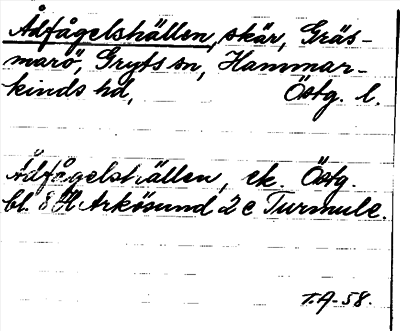 Ådfågelshällen, skär, Gräs-
marö, Gryts sn, Hammar-
kinds hd, Östg. l.
Ådfågelshällen, ek. Östg.
bl. 8 H Arkösund 2 c Turmule.
T.A-58.